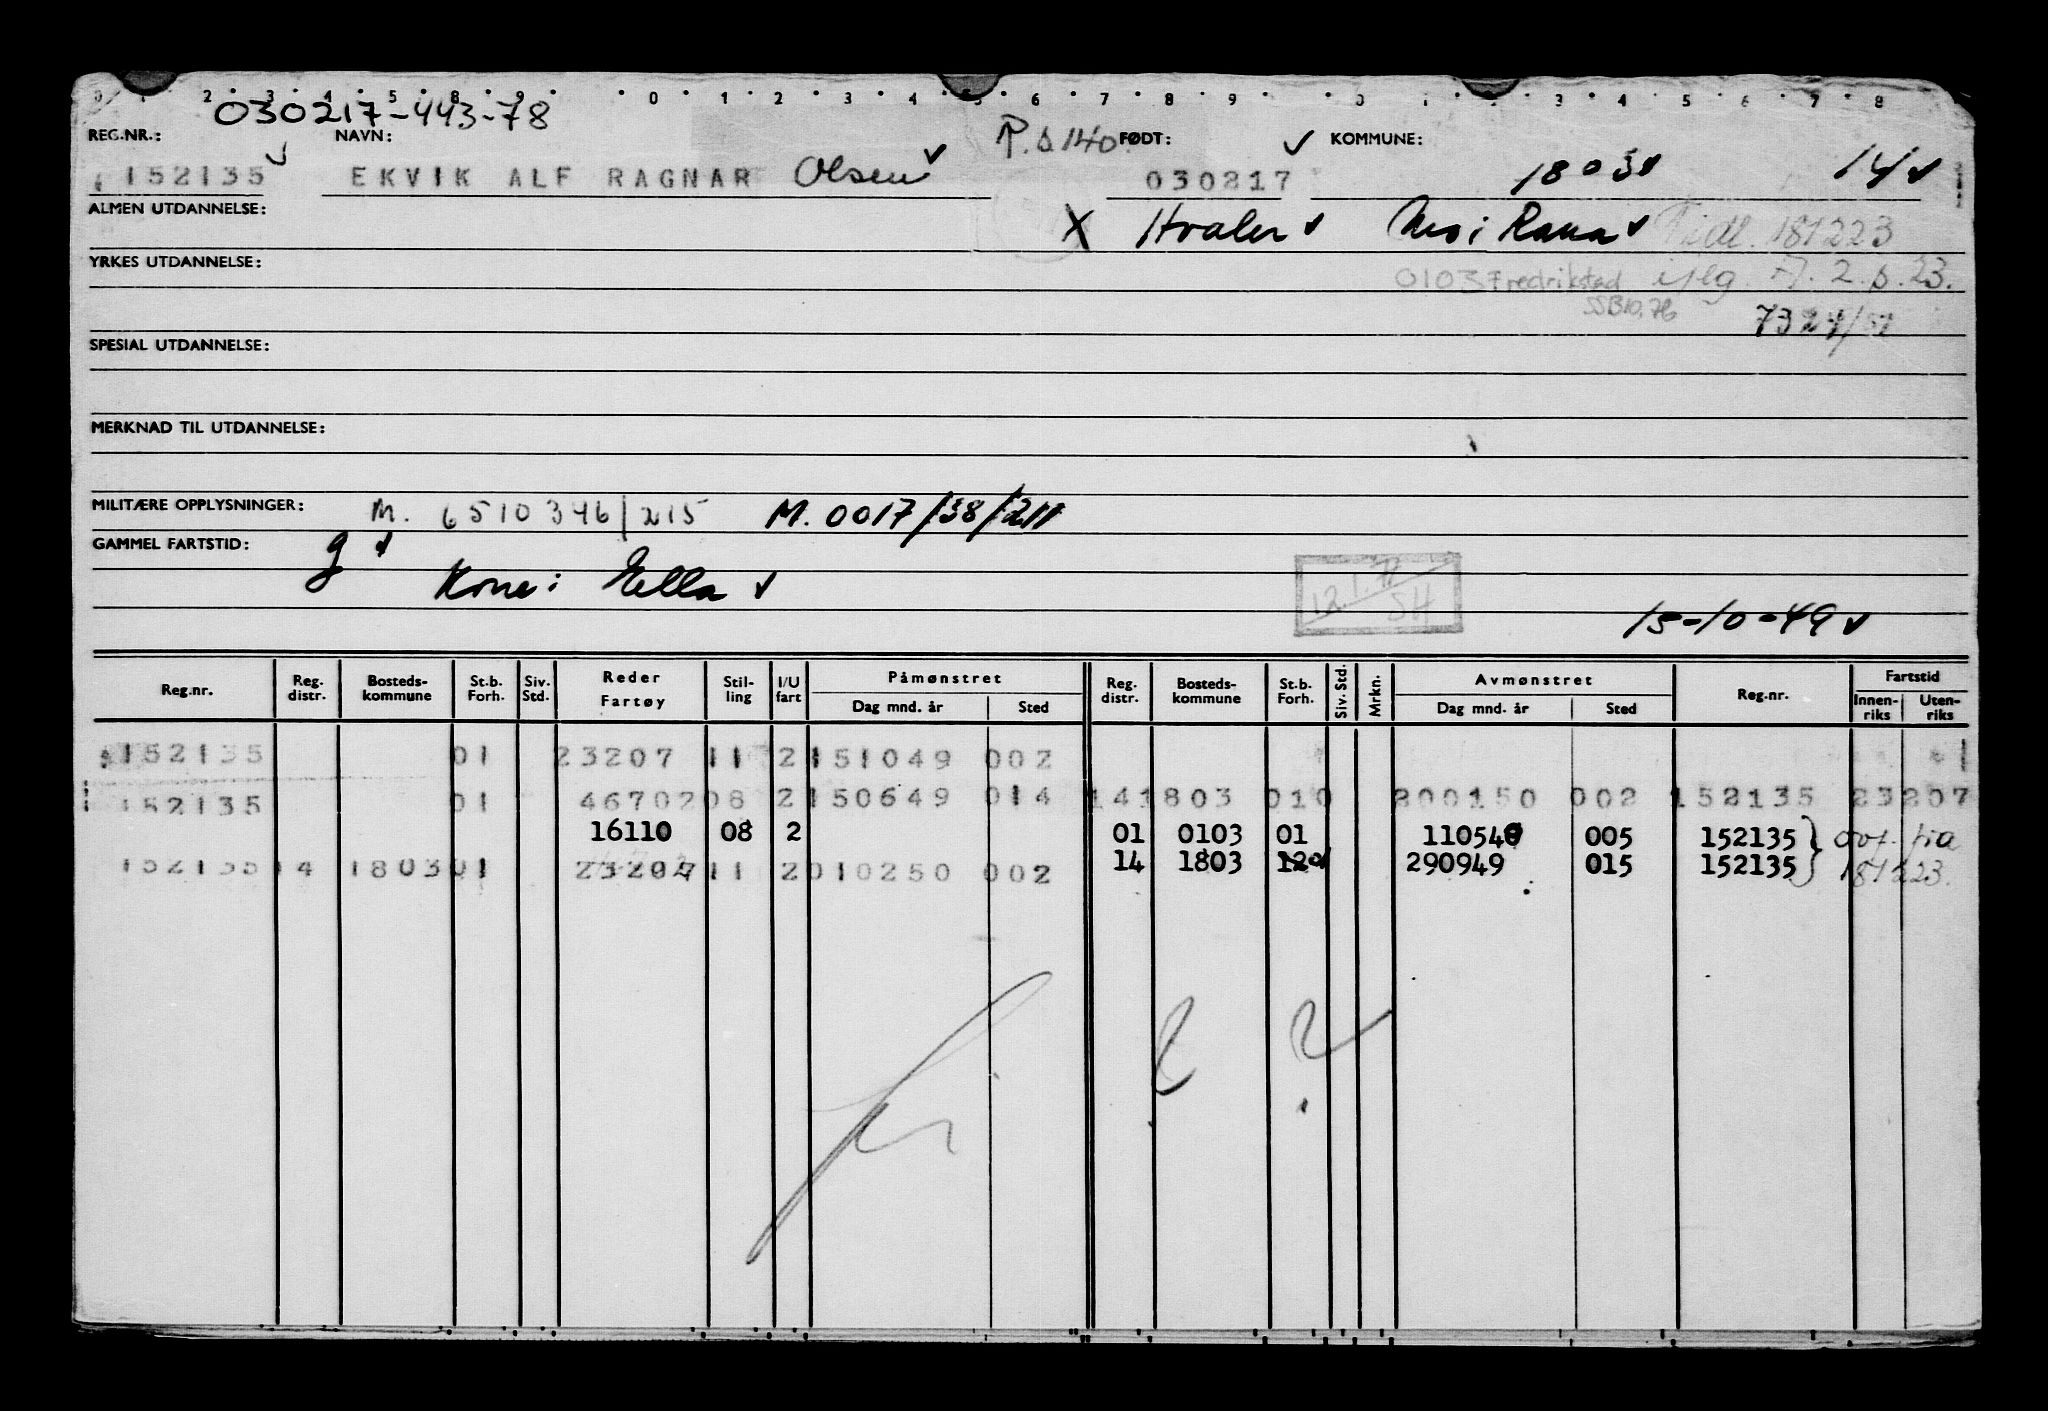 030217-443-78
REG.NR.: NAVN: P.s 140. FØDT: KOMMUNE:
152135 EKVIK ALF RAGNAR Olsen 030217 1803 14
ALMEN UTDANNELSE: X Hvaler Nesi Rana Tidl. 181223
YRKES UTDANNELSE: 0103 Fredrikstad iflg. A. 2. s. 23.
SSB10.76 7324/51
SPESIAL UTDANNELSE:
MERKNAD TIL UTDANNELSE:
MILITÆRE OPPLYSNINGER: M. 6510346/215 M. 0017/38/211
GAMMEL FARTSTID: g
Kone: Ella 12.1.77 SH
15-10-49
Reg.nr. Reg. distr. Bosteds-kommune St.b. Forh. Siv. Std. Reder Fartøy Stil-ling I/U fart Påmønstret Dag mnd. år Sted Reg. distr. Bosteds-kommune St.b. Forh. Siv. Std. Mrkn. Avmønstret Dag mnd. år Sted Reg.nr. Fartstid Innen-riks Uten-riks
152135 01 23207 11 2 151049 002
152135 01 46702 08 2 150649 014 14 1803 010 200150 002 152135 23207
16110 08 2 01 0103 01 110540 005 152135 } ovf. fra
152135 14 1803 01 23207 11 2 010250 002 14 1803 120 290949 015 152135 } 181223.